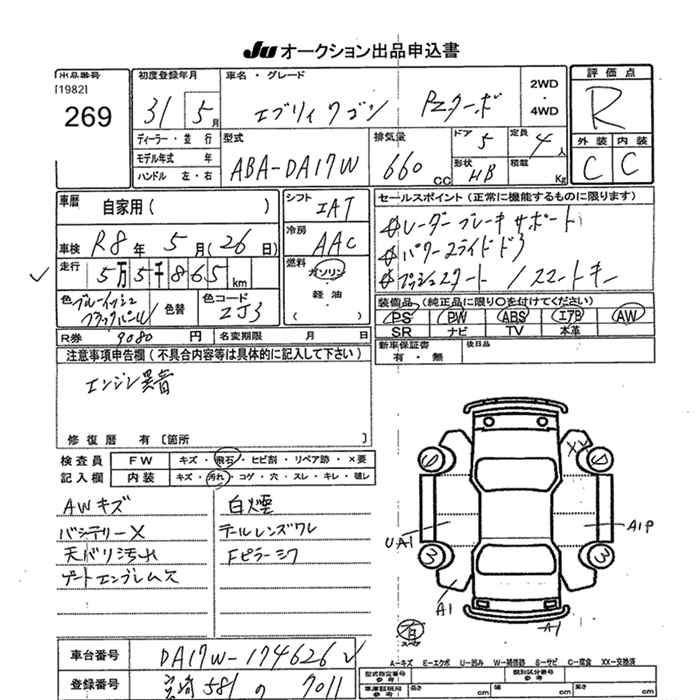 JU オークション出品申込書
出品番号 初度登録年月 車名・グレード 2WD・4WD 評価点
[1982] 269 31 5月 エブリィワゴン PZターボ R
ディーラー・並行 型式 排気量 ドア 5 定員 4人 外装 内装
モデル年式 年 ABA-DA17W 660cc 形状 HB 積載 Kg C C
ハンドル 左・右
車暦 自家用( ) シフト IAT セールスポイント(正常に機能するものに限ります)
車検 R8年 5月(26日) 冷房 AAC レーダーブレーキサポート
走行 5万5千865km 燃料 ガソリン・軽油・( ) パワースライドドア
プッシュスタート / スマートキー
色 ブルーイッシュブラックパール 色替 色コード ZJ3
装備品(純正品に限り○を付けてください)
PS PW ABS エアB AW
SR ナビ TV 本革
R券 9080円 名変期限 月 日 新車保証書 有・無 後日品
注意事項申告欄(不具合内容等は具体的に記入して下さい)
エンジン異音
修復暦 有 [箇所 ]
検査員 FW キズ・飛石・ヒビ割・リペア跡・×要
記入欄 内装 キズ・汚れ・コゲ・穴・スレ・キレ・破レ
AWキズ 白煙
バッテリーX テールレンズワレ
天バリ汚れ Fピラーシワ
ゲートエンブレム欠
XX
UA1 A1P
3 3
A1 A1
車台番号 DA17W-174626
登録番号 宮崎 581 の 7011
A-キズ E-エクボ U-凹み W-補修跡 S-サビ C-腐食 XX-交換済
型式指定番号 類別区分番号
長さ cm cm cm